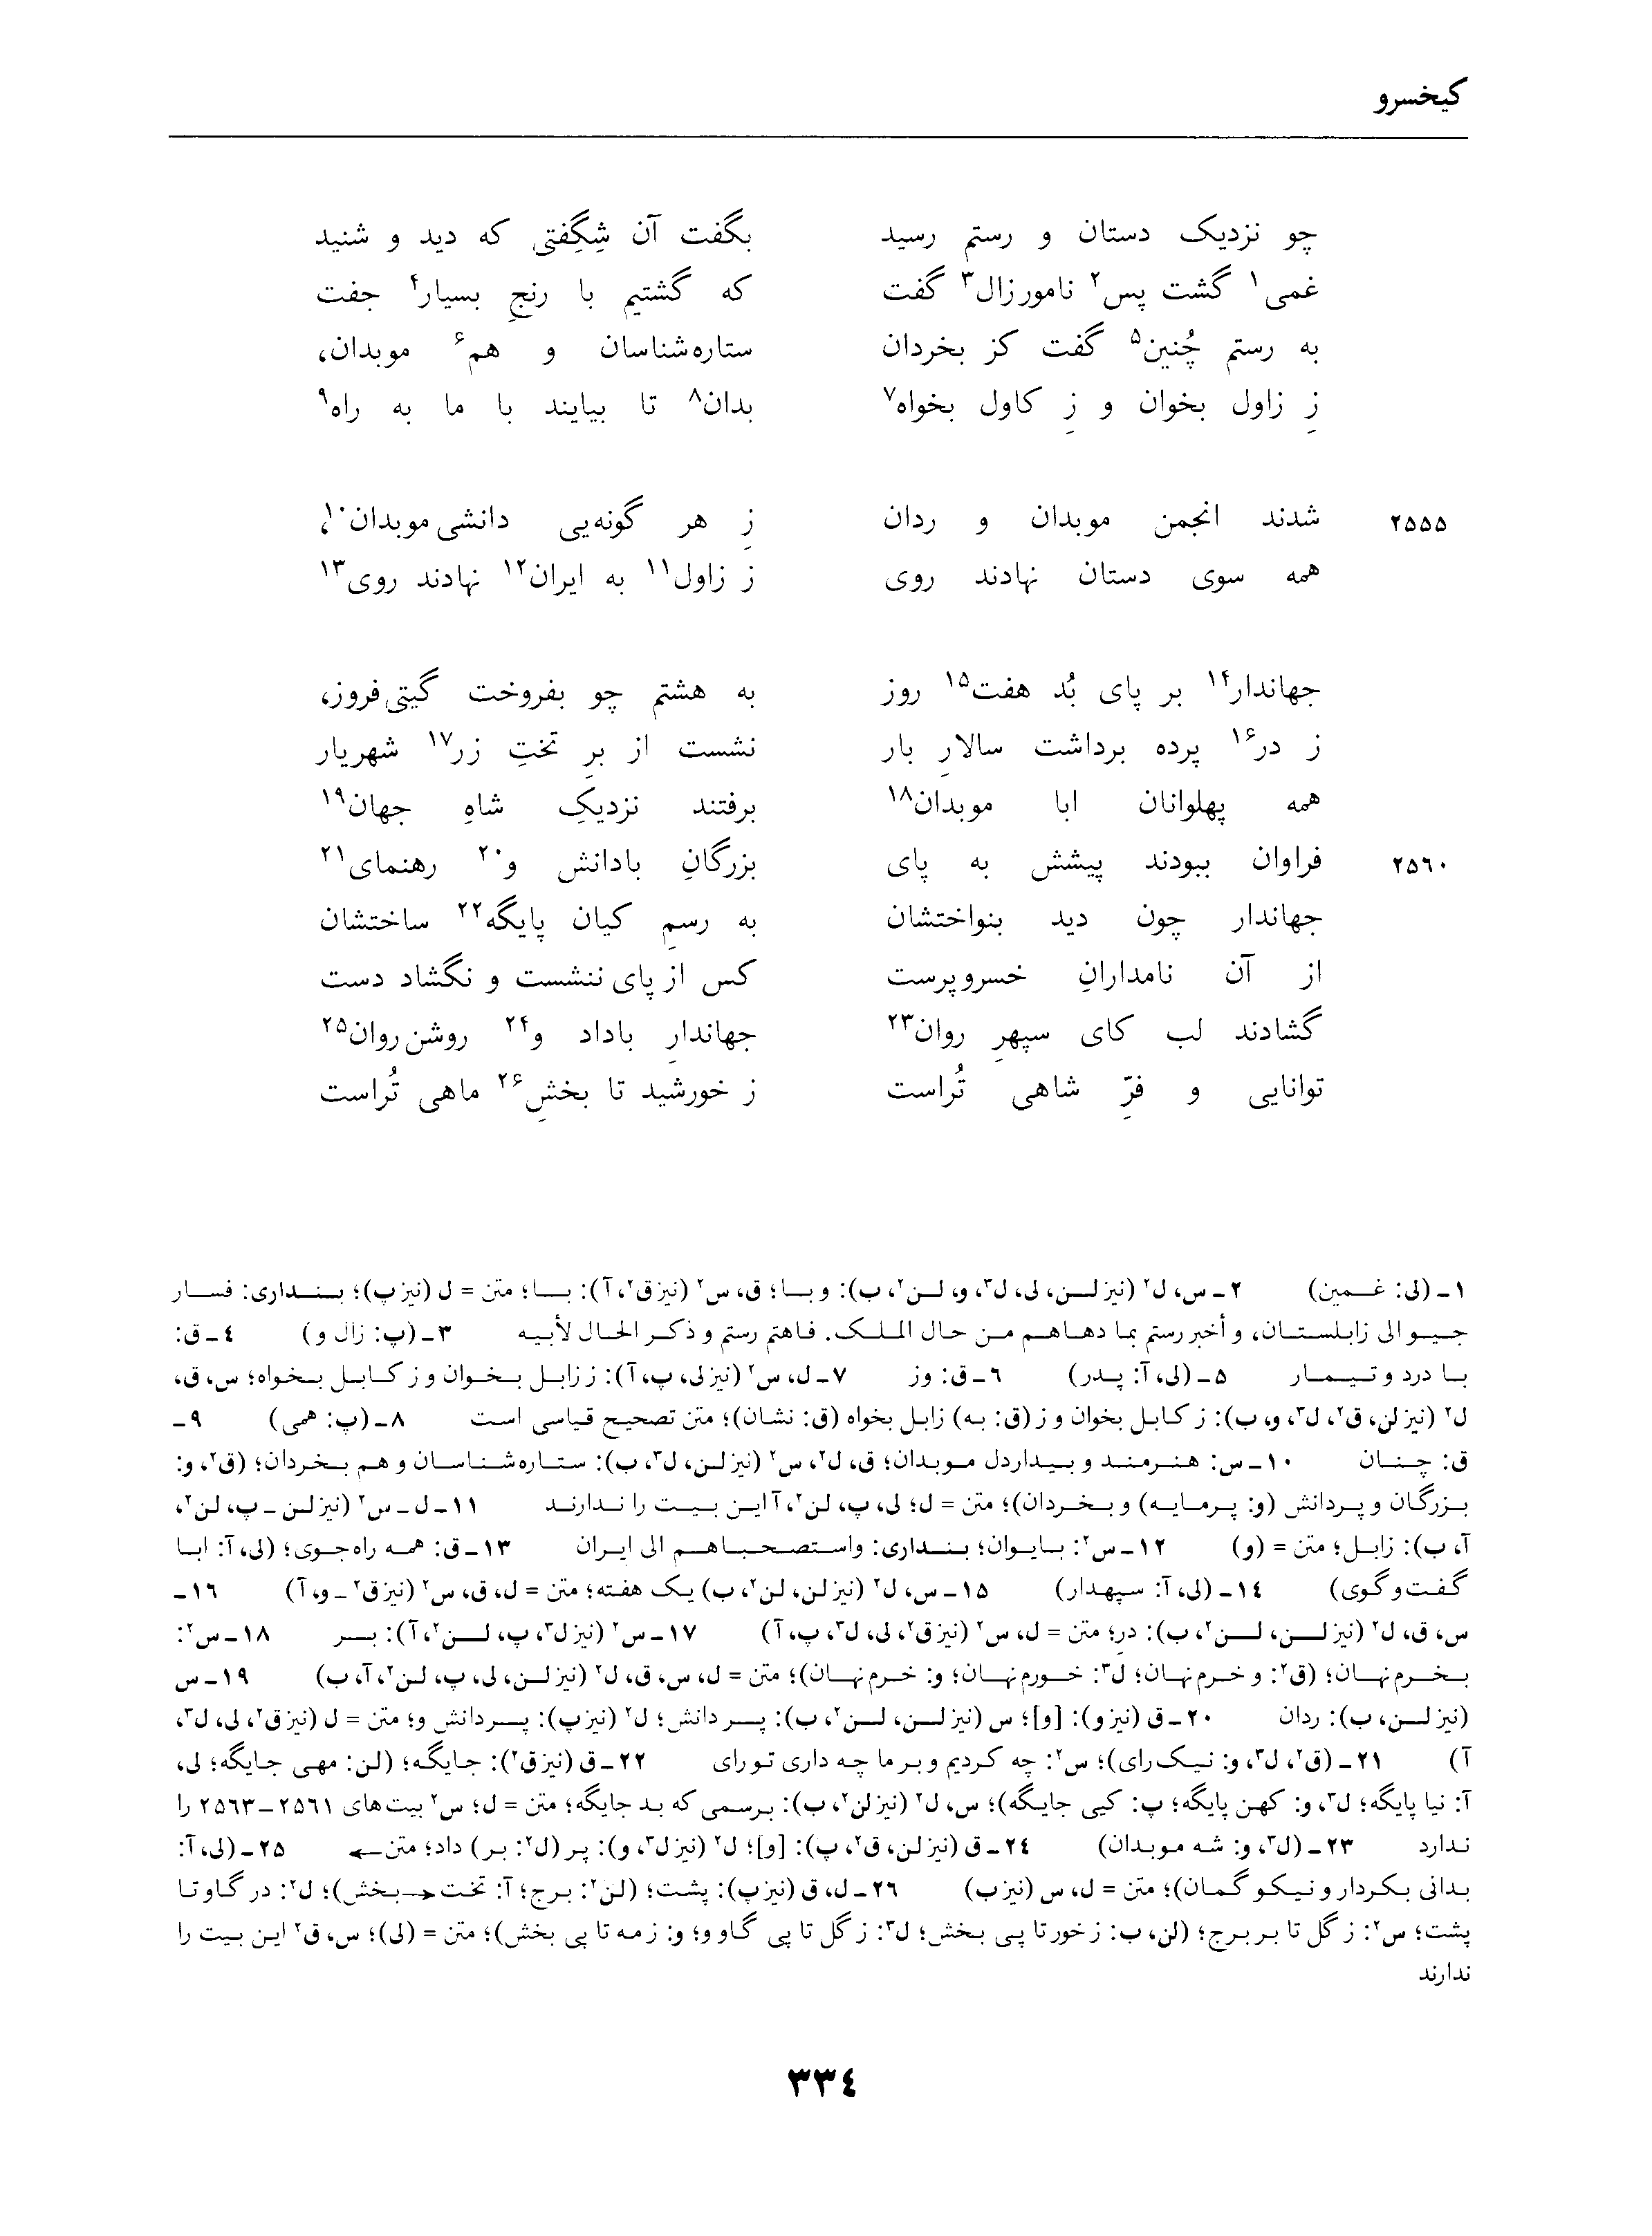 کیخسرو
چو نزدیک دستان و رستم رسید بگفت آن شِگِفتی که دید و شنید
غمی۱ گشت پس۲ نامور زال۳ گفت که گشتیم با رنجِ بسیار۴ جفت
به رستم چُنین۵ گفت کز بخردان ستاره‌شناسان و هم۶ موبدان،
زِ زاول بخوان و زِ کاول بخواه۷ بدان۸ تا بیایند با ما به راه۹
۲۵۵۵ شدند انجمن موبدان و ردان زِ هر گونه‌یی دانشی موبدان۱۰،
همه سوی دستان نهادند روی ز زاول۱۱ به ایران۱۲ نهادند روی۱۳
جهاندار۱۴ بر پای بُد هفت۱۵ روز به هشتم چو بفروخت گیتی‌فروز،
ز در۱۶ پرده برداشت سالارِ بار نشست از برِ تختِ زر۱۷ شهریار
همه پهلوانان ابا موبدان۱۸ برفتند نزدیکِ شاهِ جهان۱۹
۲۵۶۰ فراوان ببودند پیشش به پای بزرگانِ بادانش و۲۰ رهنمای۲۱
جهاندار چون دید بنواختشان به رسمِ کیان پایگه۲۲ ساختشان
از آن نامدارانِ خسروپرست کس از پای ننشست و نگشاد دست
گشادند لب کای سپهرِ روان۲۳ جهاندارِ باداد و۲۴ روشن‌روان۲۵
توانایی و فرِّ شاهی تُراست ز خورشید تا بخشِ۲۶ ماهی تُراست
۱ــ (لی: غمین) ۲ــ س، ل۲ (نیز لن، لی، ل۳، و، لن۲، ب): و با؛ ق، س۲ (نیز ق۲، آ): با؛ متن = ل (نیز پ)؛ بنداری: فسار
جیو الی زابلستان، و أخبر رستم بما دهاهم من حال الملک. فاهتم رستم و ذکر الحال لأبیه ۳ــ (پ: زال و) ۴ــ ق:
با درد و تیمار ۵ــ (لی، آ: پدر) ۶ــ ق: وز ۷ــ ل، س۲ (نیز لی، پ، آ): ز زابل بخوان و ز کابل بخواه؛ س، ق،
ل۲ (نیز لن، ق۲، ل۳، و، ب): ز کابل بخوان و ز (ق: به) زابل بخواه (ق: نشان)؛ متن تصحیح قیاسی است ۸ــ (پ: همی) ۹ــ
ق: چنان ۱۰ــ س: هنرمند و بیداردل موبدان؛ ق، ل۲، س۲ (نیز لن، ل۳، ب): ستاره‌شناسان و هم بخردان؛ (ق۲، و:
بزرگان و پردانش (و: پرمایه) و بخردان)؛ متن = ل؛ لی، پ، لن۲، آ این بیت را ندارند ۱۱ــ ل ــ س۲ (نیز لن ــ پ، لن۲،
آ، ب): زابل؛ متن = (و) ۱۲ــ س۲: بایوان؛ بنداری: واستصحباهم الی ایران ۱۳ــ ق: همه راه‌جوی؛ (لی، آ: ابا
گفت‌وگوی) ۱۴ــ (لی، آ: سپهدار) ۱۵ــ س، ل۲ (نیز لن، لن۲، ب) یک هفته؛ متن = ل، ق، س۲ (نیز ق۲ ــ و، آ) ۱۶ــ
س، ق، ل۲ (نیز لن، لن۲، ب): درِ؛ متن = ل، س۲ (نیز ق۲، لی، ل۳، پ، آ) ۱۷ــ س۲ (نیز ل۳، پ، لن۲، آ): بر ۱۸ــ س۲:
بخرم نهان؛ (ق۲: و خرم نهان؛ ل۳: خورم نهان؛ و: خرم نهان)؛ متن = ل، س، ق، ل۲ (نیز لن، لی، پ، لن۲، آ، ب) ۱۹ــ س
(نیز لن، ب): ردان ۲۰ــ ق (نیز و): [و]؛ س (نیز لن، لن۲، ب): پر دانش؛ ل۲ (نیز پ): پردانش و؛ متن = ل (نیز ق۲، لی، ل۳،
آ) ۲۱ــ (ق۲، ل۳، و: نیک‌رای)؛ س۲: چه کردیم و بر ما چه داری تو رای ۲۲ــ ق (نیز ق۲): جایگه؛ (لن: مهی جایگه؛ لی،
آ: نیا پایگه؛ ل۳، و: کهن پایگه؛ پ: کیی جایگه)؛ س، ل۲ (نیز لن۲، ب): برسمی که بد جایگه؛ متن = ل؛ س۲ بیت‌های ۲۵۶۱ــ۲۵۶۳ را
ندارد ۲۳ــ (ل۳، و: شه موبدان) ۲۴ــ ق (نیز لن، ق۲، پ): [و]؛ ل۲ (نیز ل۳، و): پر (ل۲: بر) داد؛ متن← ۲۵ــ (لی، آ:
بدانی بکردار و نیکو گمان)؛ متن = ل، س (نیز ب) ۲۶ــ ل، ق (نیز پ): پشت؛ (لن۲: برج؛ آ: تخت→بخش)؛ ل۲: در گاو تا
پشت؛ س۲: ز گل تا بر برج؛ (لن، ب: ز خور تا پی بخش؛ ل۳: ز گل تا پی گاو و؛ و: ز مه تا پی بخش)؛ متن = (لی)؛ س، ق۲ این بیت را
ندارند
۳۳۴